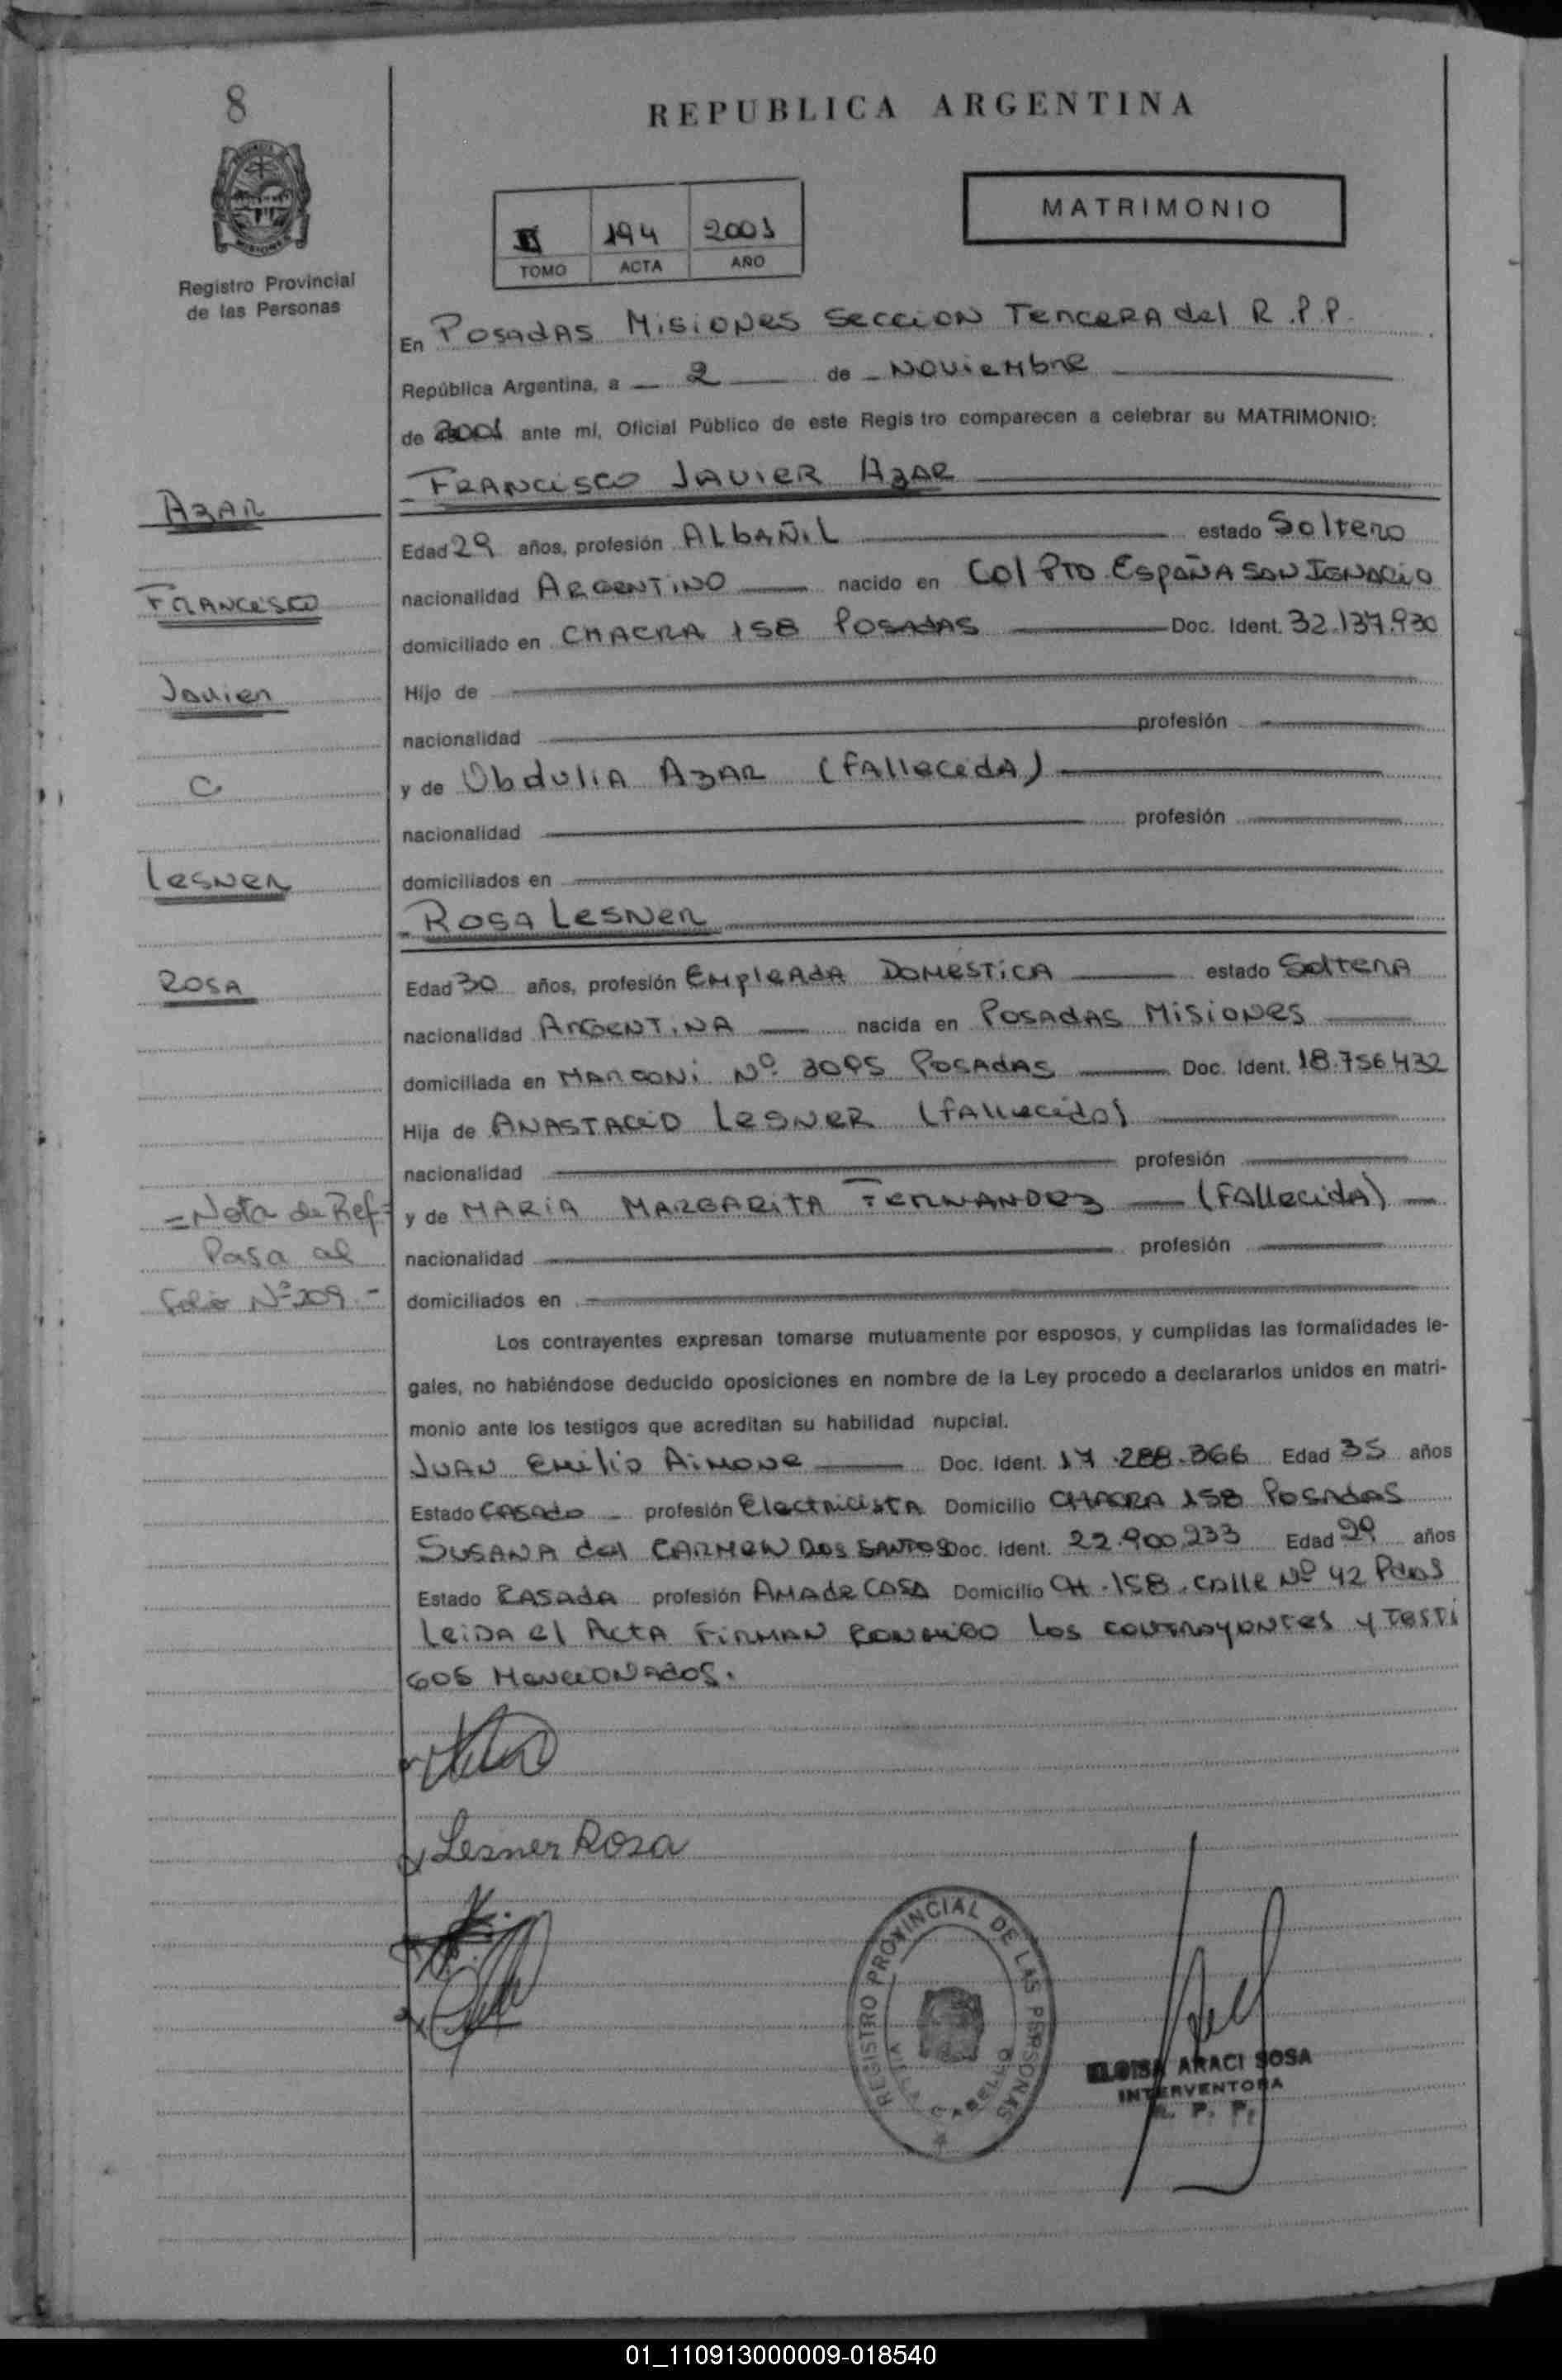 8
REPUBLICA ARGENTINA
MATRIMONIO
II 194 2001
TOMO ACTA AÑO
Registro Provincial
de las Personas
En Posadas Misiones Seccion Tercera del R.P.P.
República Argentina, a 2 de Noviembre
de 2001 ante mí, Oficial Público de este Registro comparecen a celebrar su MATRIMONIO:
Francisco Javier Azar
Azar
Edad 29 años, profesión Albañil estado Soltero
nacionalidad Argentino nacido en Col Pto España San Ignacio
Francisco
domiciliado en Chacra 158 Posadas Doc. Ident. 32.137.930
Hijo de
Javier
nacionalidad profesión
y de Obdulia Azar (Fallecida)
C
nacionalidad profesión
domiciliados en
Lesner
Rosa Lesner
Edad 30 años, profesión Empleada Domestica estado Soltera
Rosa
nacionalidad Argentina nacida en Posadas Misiones
domiciliada en Marconi Nº 3095 Posadas Doc. Ident. 18.756.432
Hija de Anastacio Lesner (fallecido)
nacionalidad profesión
=Nota de Ref=
y de Maria Margarita Fernandez (Fallecida)
Pasa al
nacionalidad profesión
folio Nº 209.-
domiciliados en
Los contrayentes expresan tomarse mutuamente por esposos, y cumplidas las formalidades le-
gales, no habiéndose deducido oposiciones en nombre de la Ley procedo a declararlos unidos en matri-
monio ante los testigos que acreditan su habilidad nupcial.
Juan Emilio Aimone Doc. Ident. 17.288.366 Edad 35 años
Estado Casado profesión Electricista Domicilio Chacra 158 Posadas
Susana del Carmen Dos Santos Doc. Ident. 22.900.233 Edad 29 años
Estado Casada profesión Ama de Casa Domicilio CH.158.Calle Nº 42 Pdas
Leida el Acta Firman conmigo los contrayentes y testi
gos Mencionados.
Lesner Rosa
REGISTRO PROVINCIAL DE LAS PERSONAS
VILLA CABELLO
ELOISA ARACI SOSA
INTERVENTORA
R. P. P.
01_110913000009-018540